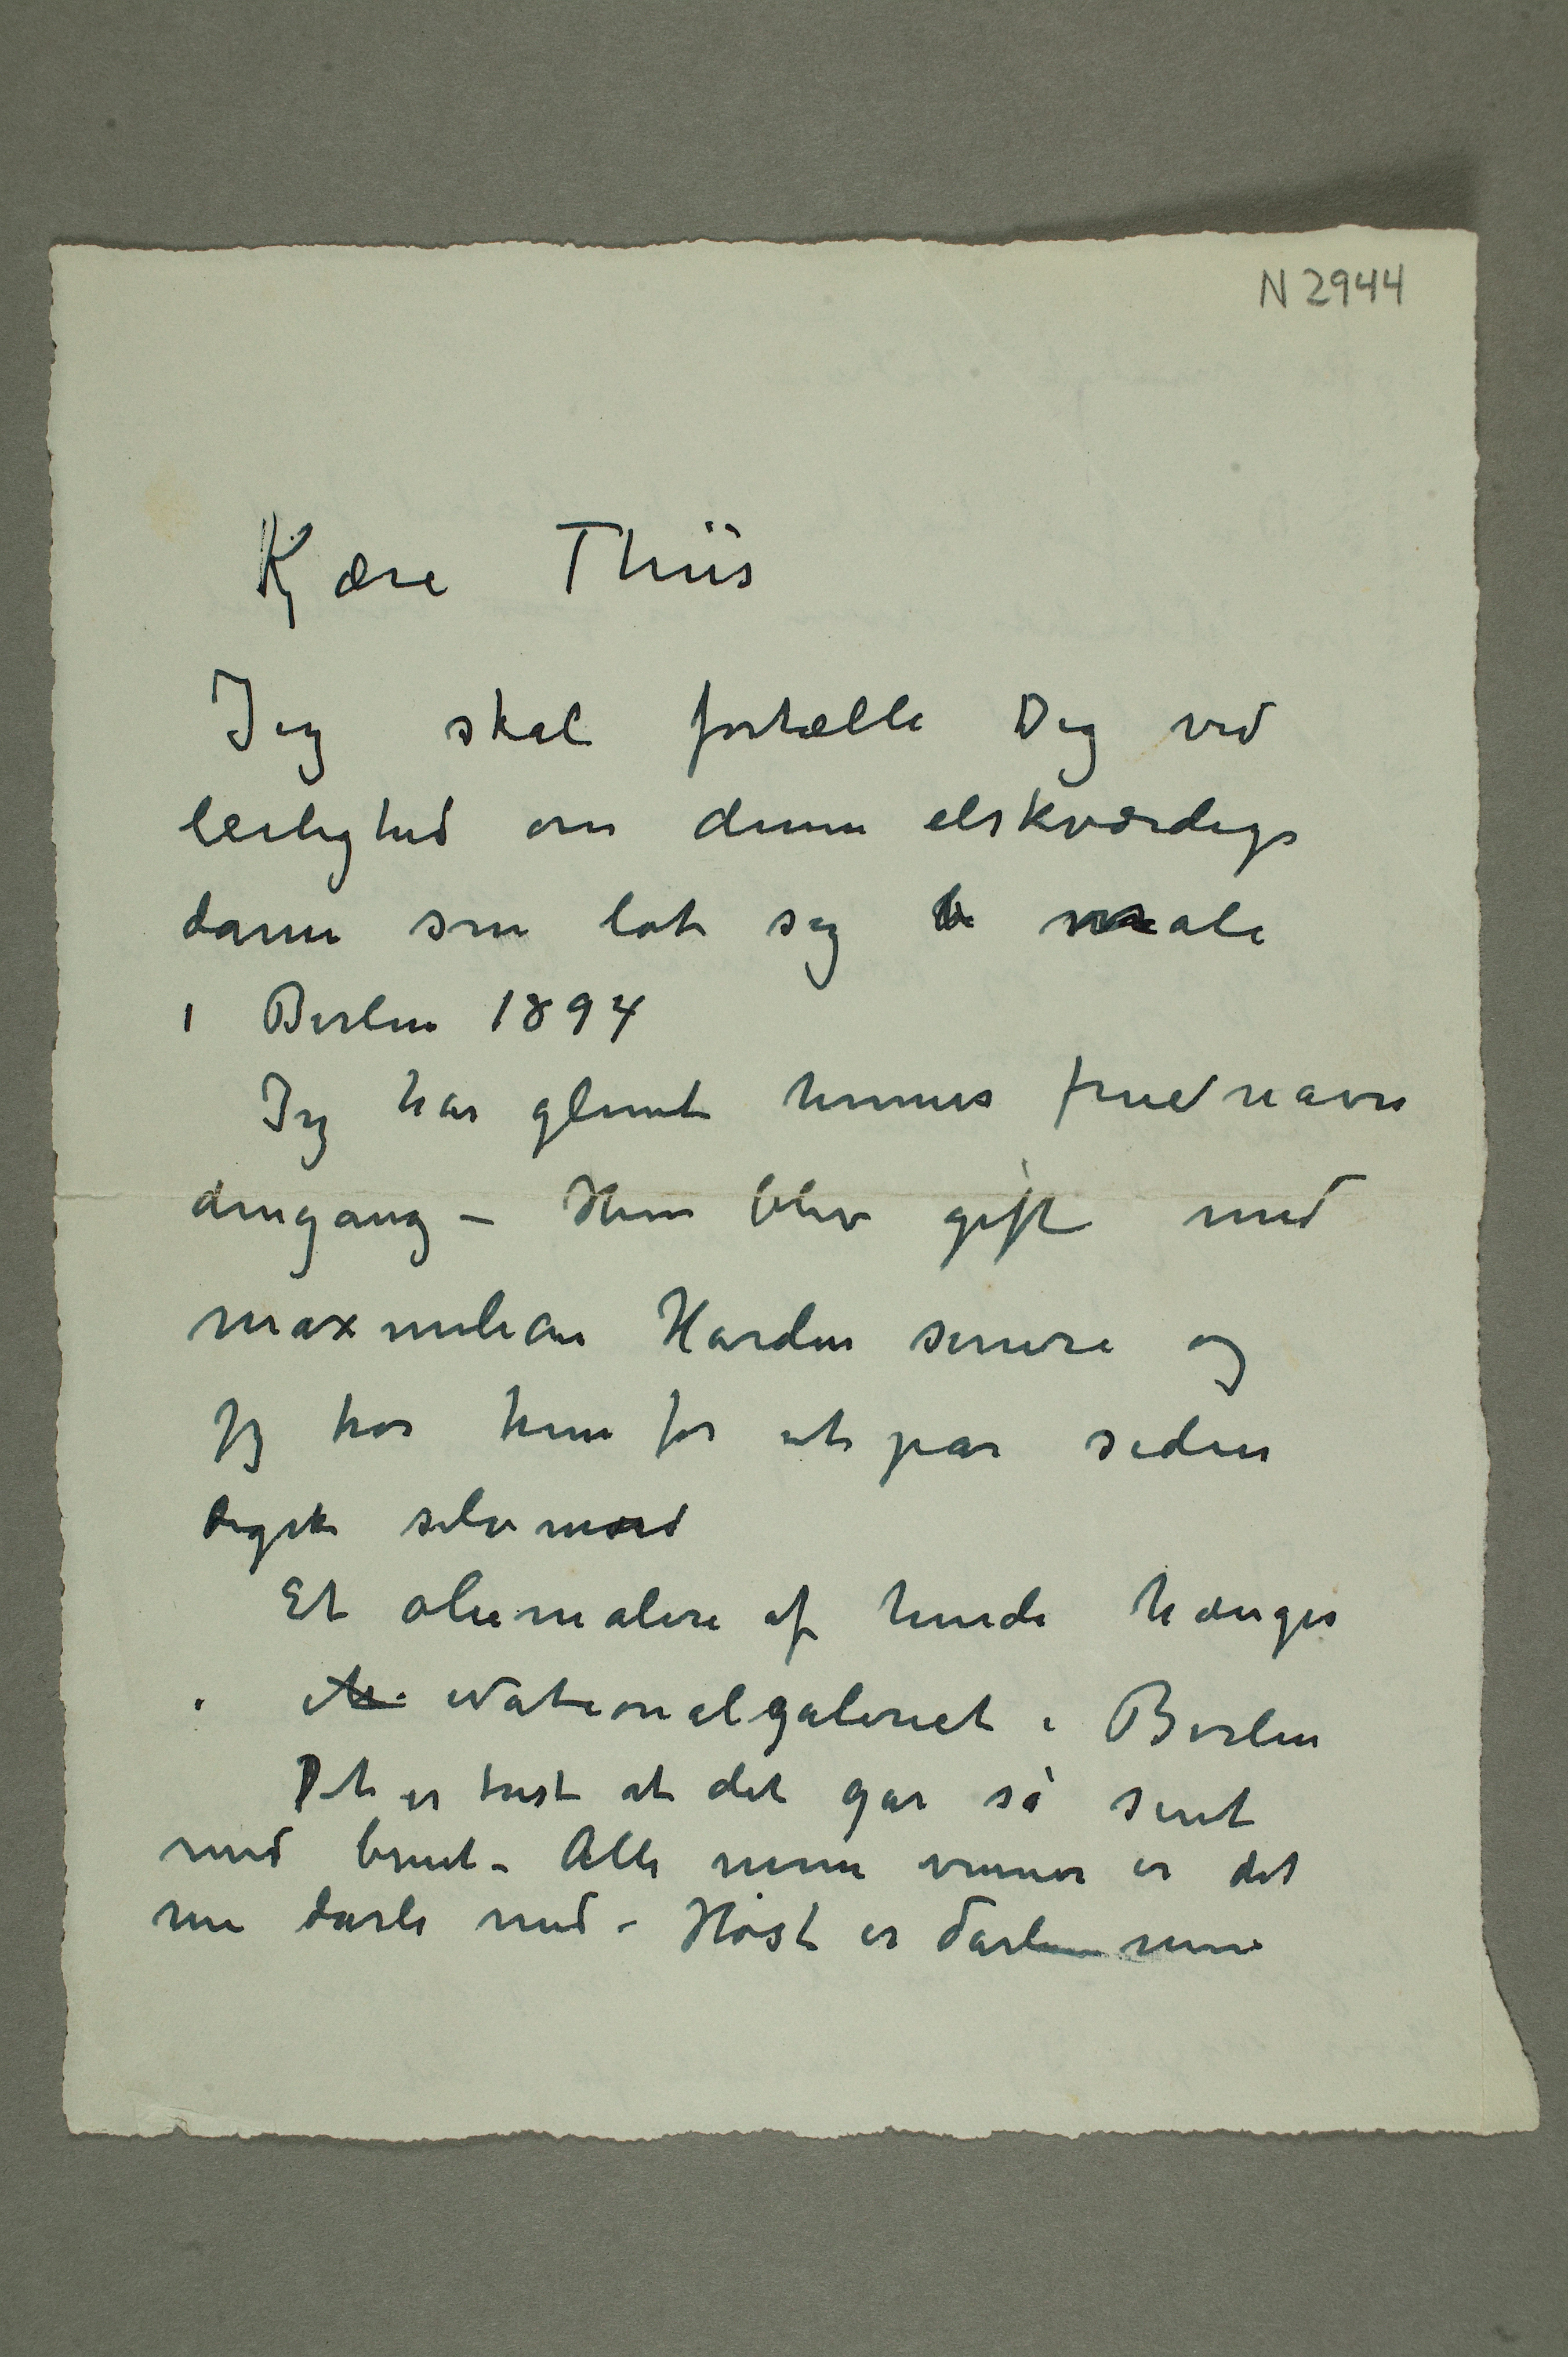 N 2944
Kjære Thiis
Jeg skal fortælle Dig ved
leilighed om denne elskværdige
dame som lot sig male
i Berlin 1894
Jeg har glemt hennes fruenavn
dengang – Hun blev gift med
Maxmilian Harden senere og
jeg tror hun for et par siden
begik selvmord
Et oliemaleri af hende hænger
i Nationalgaleriet i Berlin
Det er trist at det går så sent
med benet – Alle mine venner er det
nu dårli med – Høst er dårli